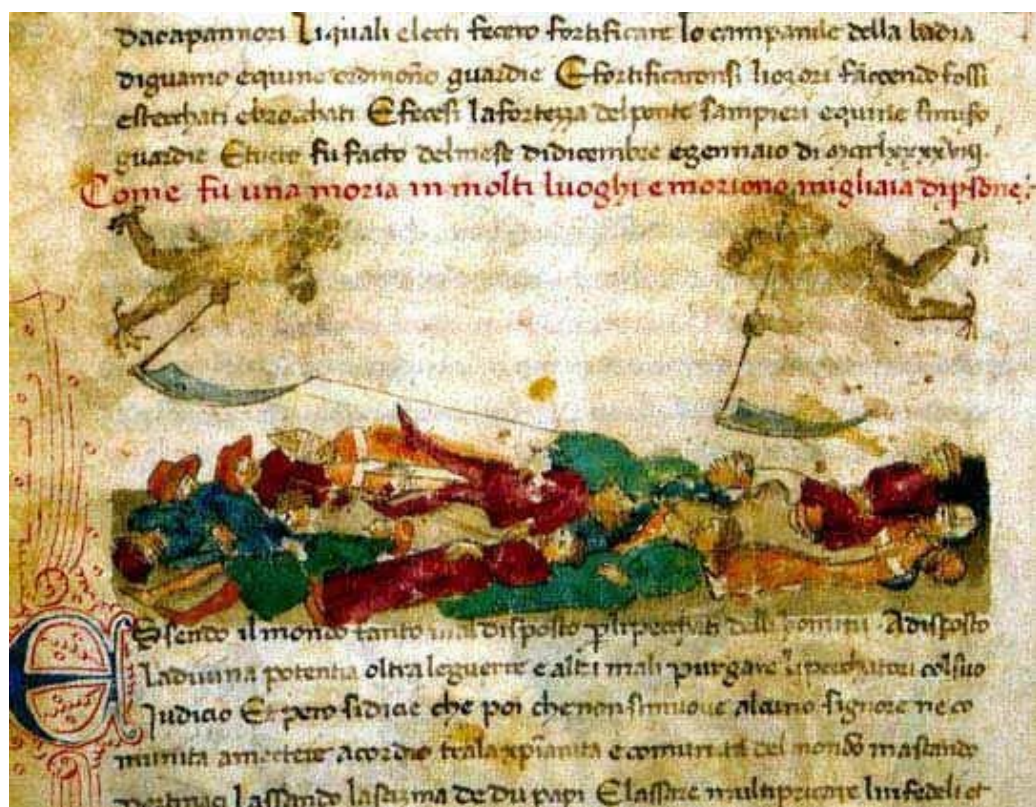 dacapannori Liquali electi fecero fortificare lo campanile della badia
diguamo equine ordinono guardie Efortificaronsi liborghi faccendo fossi
estecchati ebrocchati Efecesi lafortezza delponte sampieri equine simiso
guardie Etucto fu facto delmese didicembre egennaio di
Come fu una moria in molti luoghi e moriono migliaia dipsone:
Essendo il mondo tanto mal disposto plipecchati delli homini Adisposto
Ladiuina potentia oltra leguerre e altri mali purgare li peccatori colsuo
Judicio Et pero sidicie che poi che non simuove alcuno signore ne co
munita amectere acordio tralaxpianita e comunita del mondo mastando
pertinaci Lassando lascisma de du papi Elassare multipricare linfedeli et